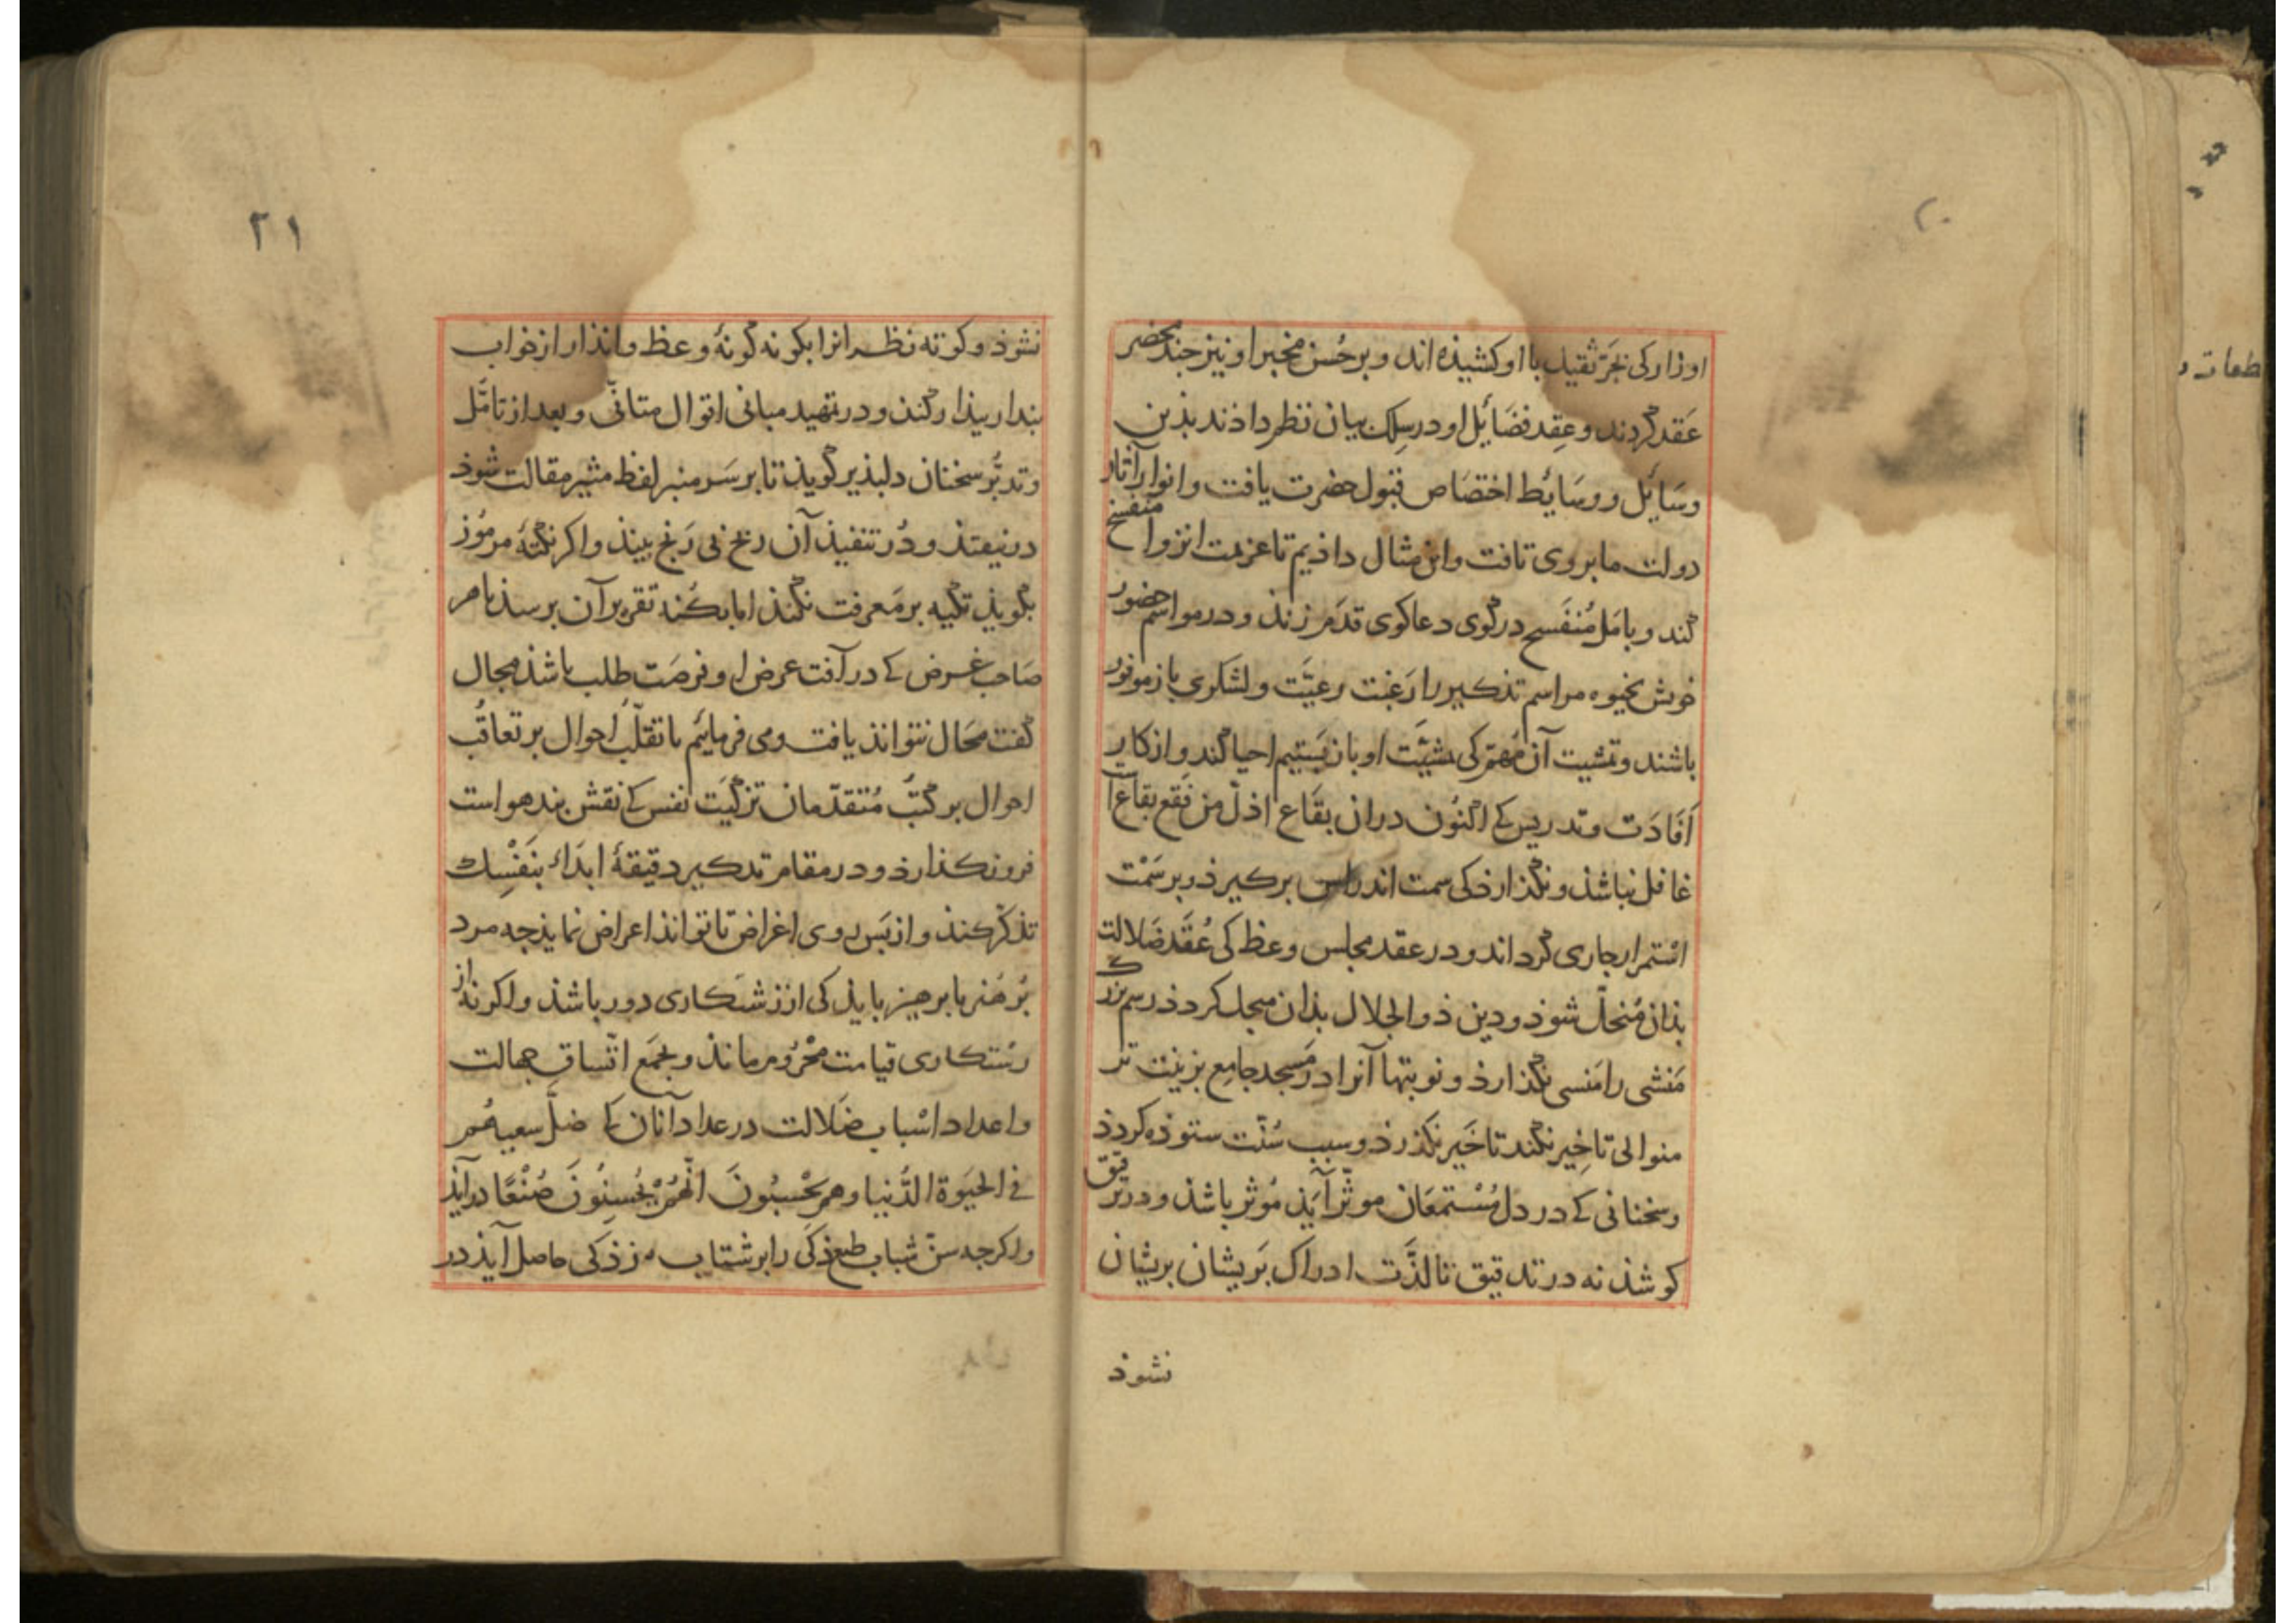 ۲۰
اوزار کی بجرّ ثقیل با او کشیذه اند و بر حُسن مخبر او نیز جند محضر
عَقد کردند و عِقد فضَائل او در سِلک بیان نظم داذند بذین
وسَایل و وسَائط اختصَاص قبول حضرت یافت و انوار آثار
دولت ما بر وی تافت و این مثال داذیم تا عزیمت انزوا منفسخ
کند و بامَل مُنفَسح در کوی دعاکوی قدَم زند و در مواسم حضور
خوش بخیوه مراسم تذکیر را رَغبت رعیّت و لشکری باز موفور
باشند و تمشیت آن مُهمّ کی مشیّت او بان بَستیم احیا کند و از کار
اَفادَت و تدریس کے اکنُون دران بقاع اذلّ من فَقع بقاع است
غافل نباشذ و نکذارذ کی سمت اندراس برکیرذ و بر سَمْت
استمرار جاری کرداند و در عقد مجلس وعظ کی عُقَد ضَلالت
بذان مُنحلّ شوذ و دین ذو الجلال بذان مبجل کردذ رسم بزرک
مَنشی را مَنسی نکذارذ و نوبتها آنرا در مَسجد جامع بزینت تر
منوالی تاخِیر نکند تا خَیر نکذرذ و سبب سُنّت ستوذه کردذ
و سخنانی کے در دل مُسْتمعَان موثّر آیَذ مُوثر باشذ و در ترقیق
کوشذ نه در تدقیق تا لذَّت ادراک بَریشان بریشان
نشوذ
۲۱
نشوذ و کوته نظر انرا بکونه کونهٔ وعظ و انذار از خواب
بندار بیذار کنذ و در تمهید مبانی اقوال متانّی و بعد از تامّل
و تدبُّر سخنان دلبذیر کویذ تا بر سَر منبر لفظ مثیر مقالت شوذ
درنیفتذ و دُر تنفیذ آن رخ نی رَنج بیند و اکر نکتهٔ مرمُوز
بکویذ تکیه بر مَعرفت نکنذ اما بکُنه تقریر آن برسذ تا هر
صَاحب غرض کے در آفت عرض او فرصَت طلب باشذ مجال
کفت محَال نتوانذ یافت و می فرمائیم با تقلّب احوال بر تعاقُب
احوال بر کتبَ مُتقدّمان تزکیَت نفس کے نقش بند هواست
فرو نکذارذ و در مقام تذکیر دقیقهٔ ابدَاء بنَفْسِك
تذکّر کنذ و از بَس روی اغراض تا توانذ اعراض نمایذ جه مرد
بُر هنر با برهیز بایذ کی از زشتکاری دور باشذ و اکر نه از
رستکاری قیامت محْرُوم مانذ و بجمَع اتّساق جهالت
و اعداد اسْباب ضَلالت در عداد آنان کے ضلّ سعیهُم
في الحیَوة الدُّنیا وهم یحْسبُونَ انَّهُمْ یُحْسِنُونَ صُنْعًا درآیذ
و اکرجه سنّ شباب طبع ذکی را بر شتاب ‌ زدکی حاصل آیذ در